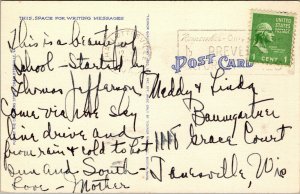 THIS SPACE FOR WRITING MESSAGES
This is a beautiful
school - Started by
Thomas Jefferson.
Came via the Sky
line drive and
from rain & cold to hot
sun and South -
Love - Mother
POST CARD
Neddy & Linda
Baumgartner
1115 Grace Court
Janesville, Wis
1 CENT 1